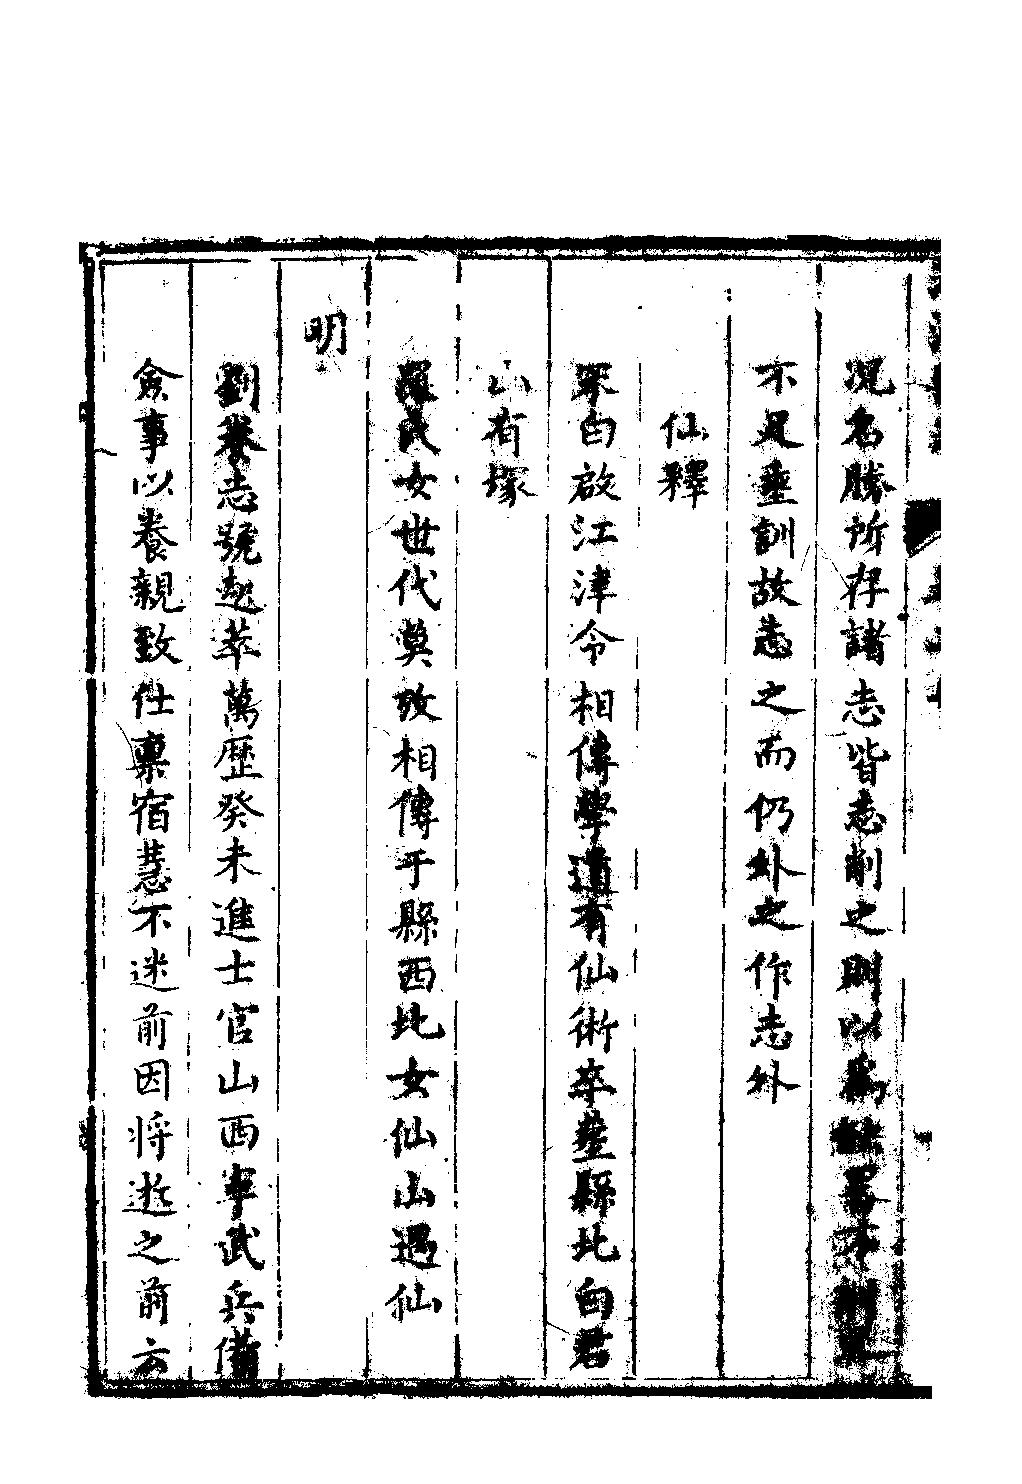 况名勝所存諸志皆志削之則以爲缺畧不削
不足垂訓故志之而仍外之作志外
仙釋
翠白啟江津令相傳學道有仙術卒塟縣北白君
山有塚
羅氏女世代莫攷相傳于縣西北女仙山遇仙
明
劉養志號越萃萬歷癸未進士官山西寧武兵備
僉事以養親致仕禀宿慧不迷前因將逝之前云